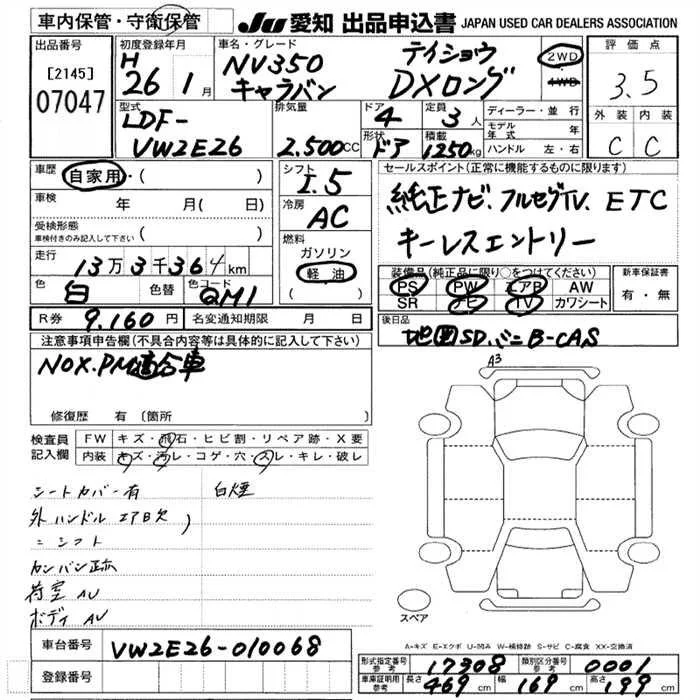 車内保管・守衛保管 JU 愛知 出品申込書 JAPAN USED CAR DEALERS ASSOCIATION
出品番号 [2145] 07047
初度登録年月 H 26 1月
車名・グレード NV350 キャラバン テイショウ DXロング
2WD 4WD
評価点 3.5
外装 内装 C C
型式 LDF-VW2E26
排気量 2,500cc
ドア 4 形状 ドア
定員 3人 積載 1250kg
ディーラー・並行
モデル年式 年
ハンドル 左・右
車歴 自家用・( )
車検 年 月( 日)
受検形態 車検付きのみ記入して下さい ( )
走行 13万3千364km
色 白 色替 色コード QM1
R券 9,160円 名変通知期限 月 日
シフト I.5
冷房 AC
燃料 ガソリン 軽油
セールスポイント(正常に機能するものに限ります)
純正ナビ.フルセグTV. ETC
キーレスエントリー
装備品(純正品に限り○をつけてください)
PS PW エアB AW
SR ナビ TV カワシート
新車保証書 有・無
後日品 地図SD.ミニB-CAS
注意事項申告欄(不具合内容等は具体的に記入して下さい)
NOX.PM適合車
修復歴 有 (箇所 )
検査員記入欄
FW キズ・飛石・ヒビ割・リペア跡・X要
内装 キズ・汚レ・コゲ・穴・スレ・キレ・破レ
シートカバー有 白煙
外ハンドル エアB欠
〃 シフト
カンバン跡
荷室 AU
ボディ AU
A3
スペア
A-キズ E-エクボ U-凹み W-補修跡 S-サビ C-腐食 XX-交換済
車台番号 VW2E26-010068
登録番号
形式指定番号 参考 17308 類別区分番号 参考 0001
車庫証明用 参考 長さ 469cm 幅 169cm 高さ 199cm